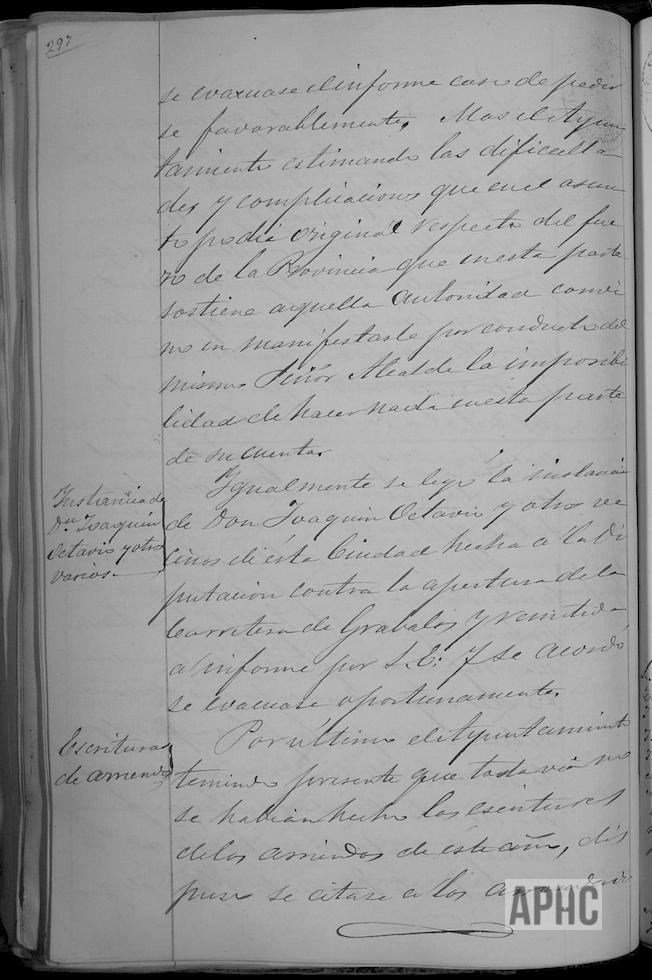 297
se evacuase el informe caso de pedir
se favorablemente. Mas el Ayun
tamiento estimando las dificulta
des y complicaciones que en el asun
to podia original respecto del fue
ro de la Provincia que en esta parte
sostiene aquella autoridad convi
no en manifestarle por conducto del
mismo Señor Alcalde la imposibi
lidad de hacer nada en esta parte
de su cuenta.
Instancia de
Dn. Joaquin
Octavio y otros
varios.
Igualmente se leyó la instancia
de Don Joaquin Octavio y otros ve
cinos de ésta Ciudad hecha a la Di
putacion contra la apertura de la
Carretera de Grabalos y remitida
a informe por S.E. y se acordó
se evacuase oportunamente.
Escrituras
de arriendo
Por último el Ayuntamiento
teniendo presente que todavia no
se habian hecho las escrituras
de los arriendos de éste año, dis
puso se citase a los
APHC